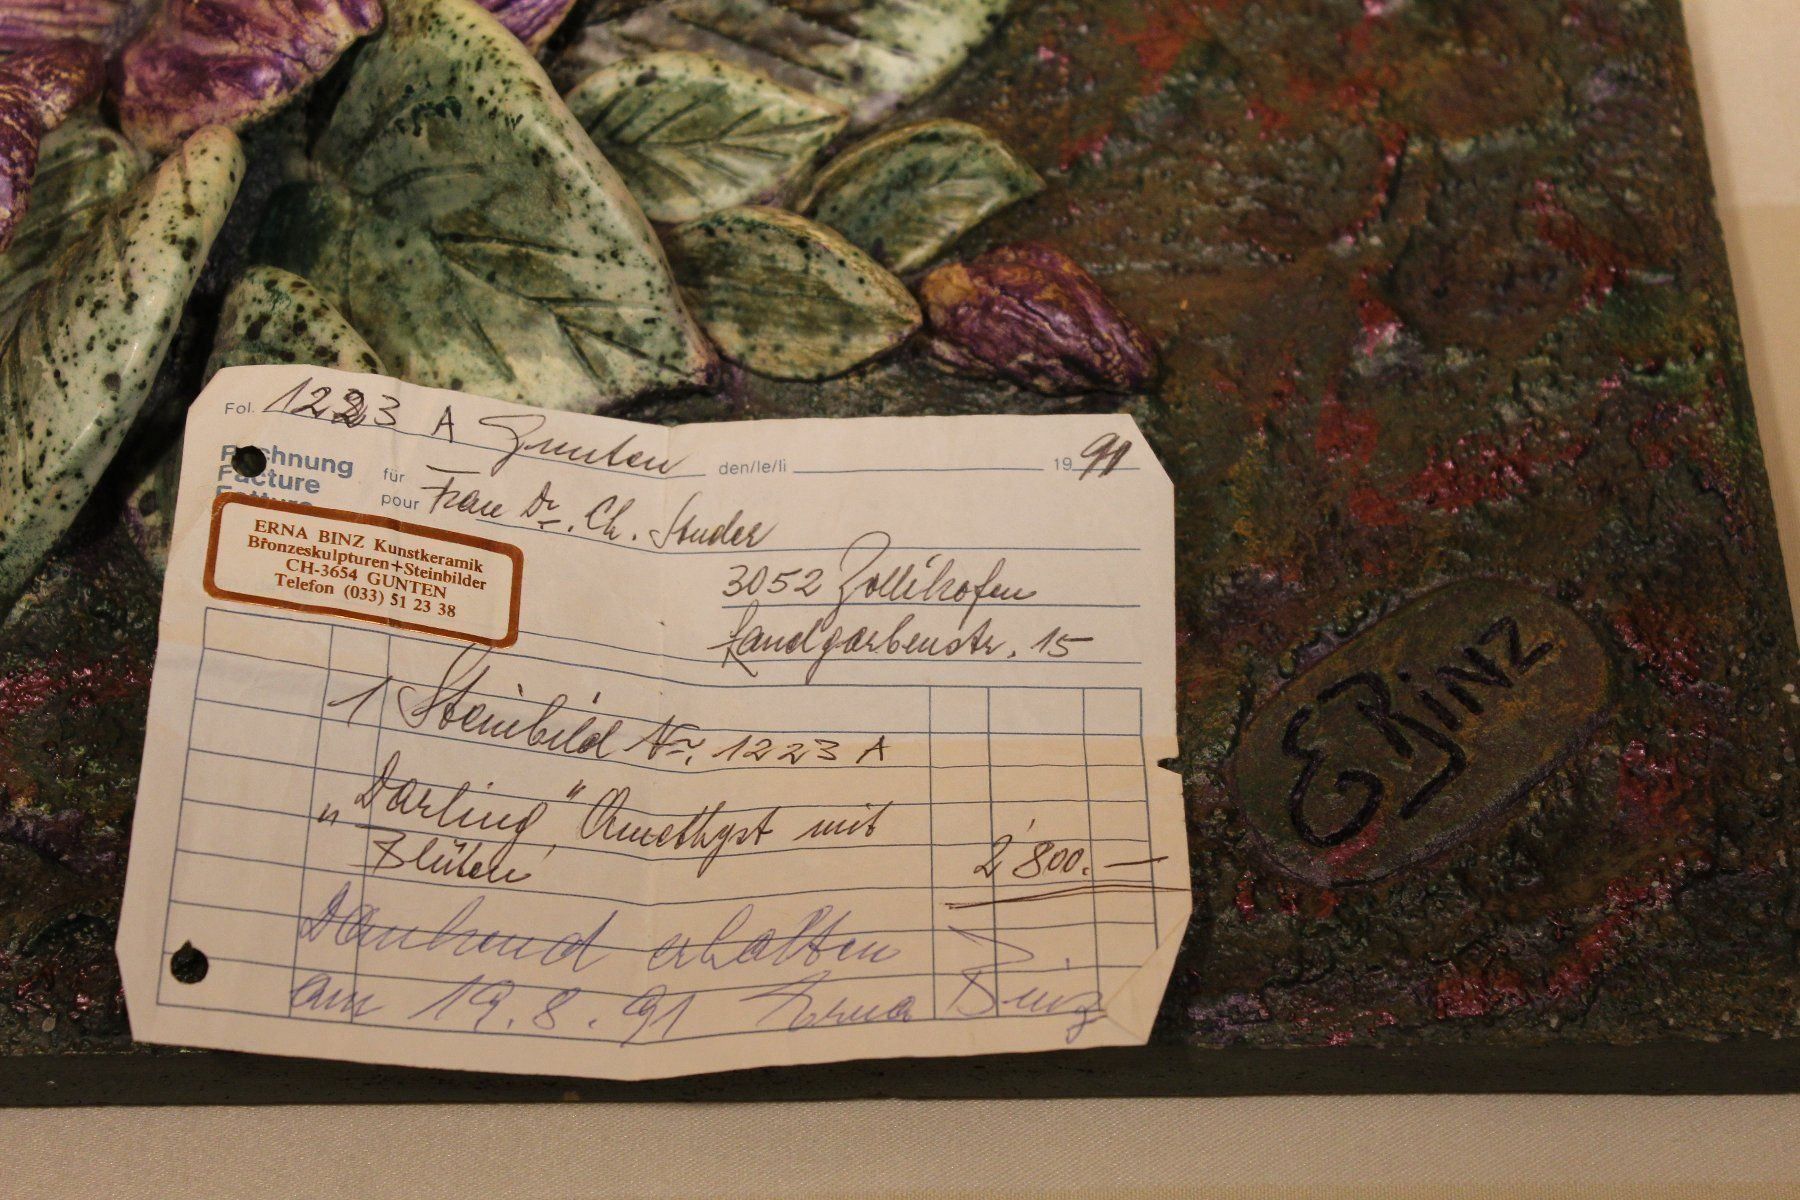 Fol. 1223 A Gunten den/le/li 1991
Rechnung für
Facture pour Frau Dr. Ch. Studer
Fattura
ERNA BINZ Kunstkeramik
Bronzeskulpturen+Steinbilder
CH-3654 GUNTEN
Telefon (033) 51 23 38
3052 Zollikofen
Landgarbenstr. 15
1 Steinbild Nr. 1223 A
"Darling" Amethyst mit
Blüten 2'800.—
Dankend erhalten
am 19.8.91 Erna Binz
E Binz